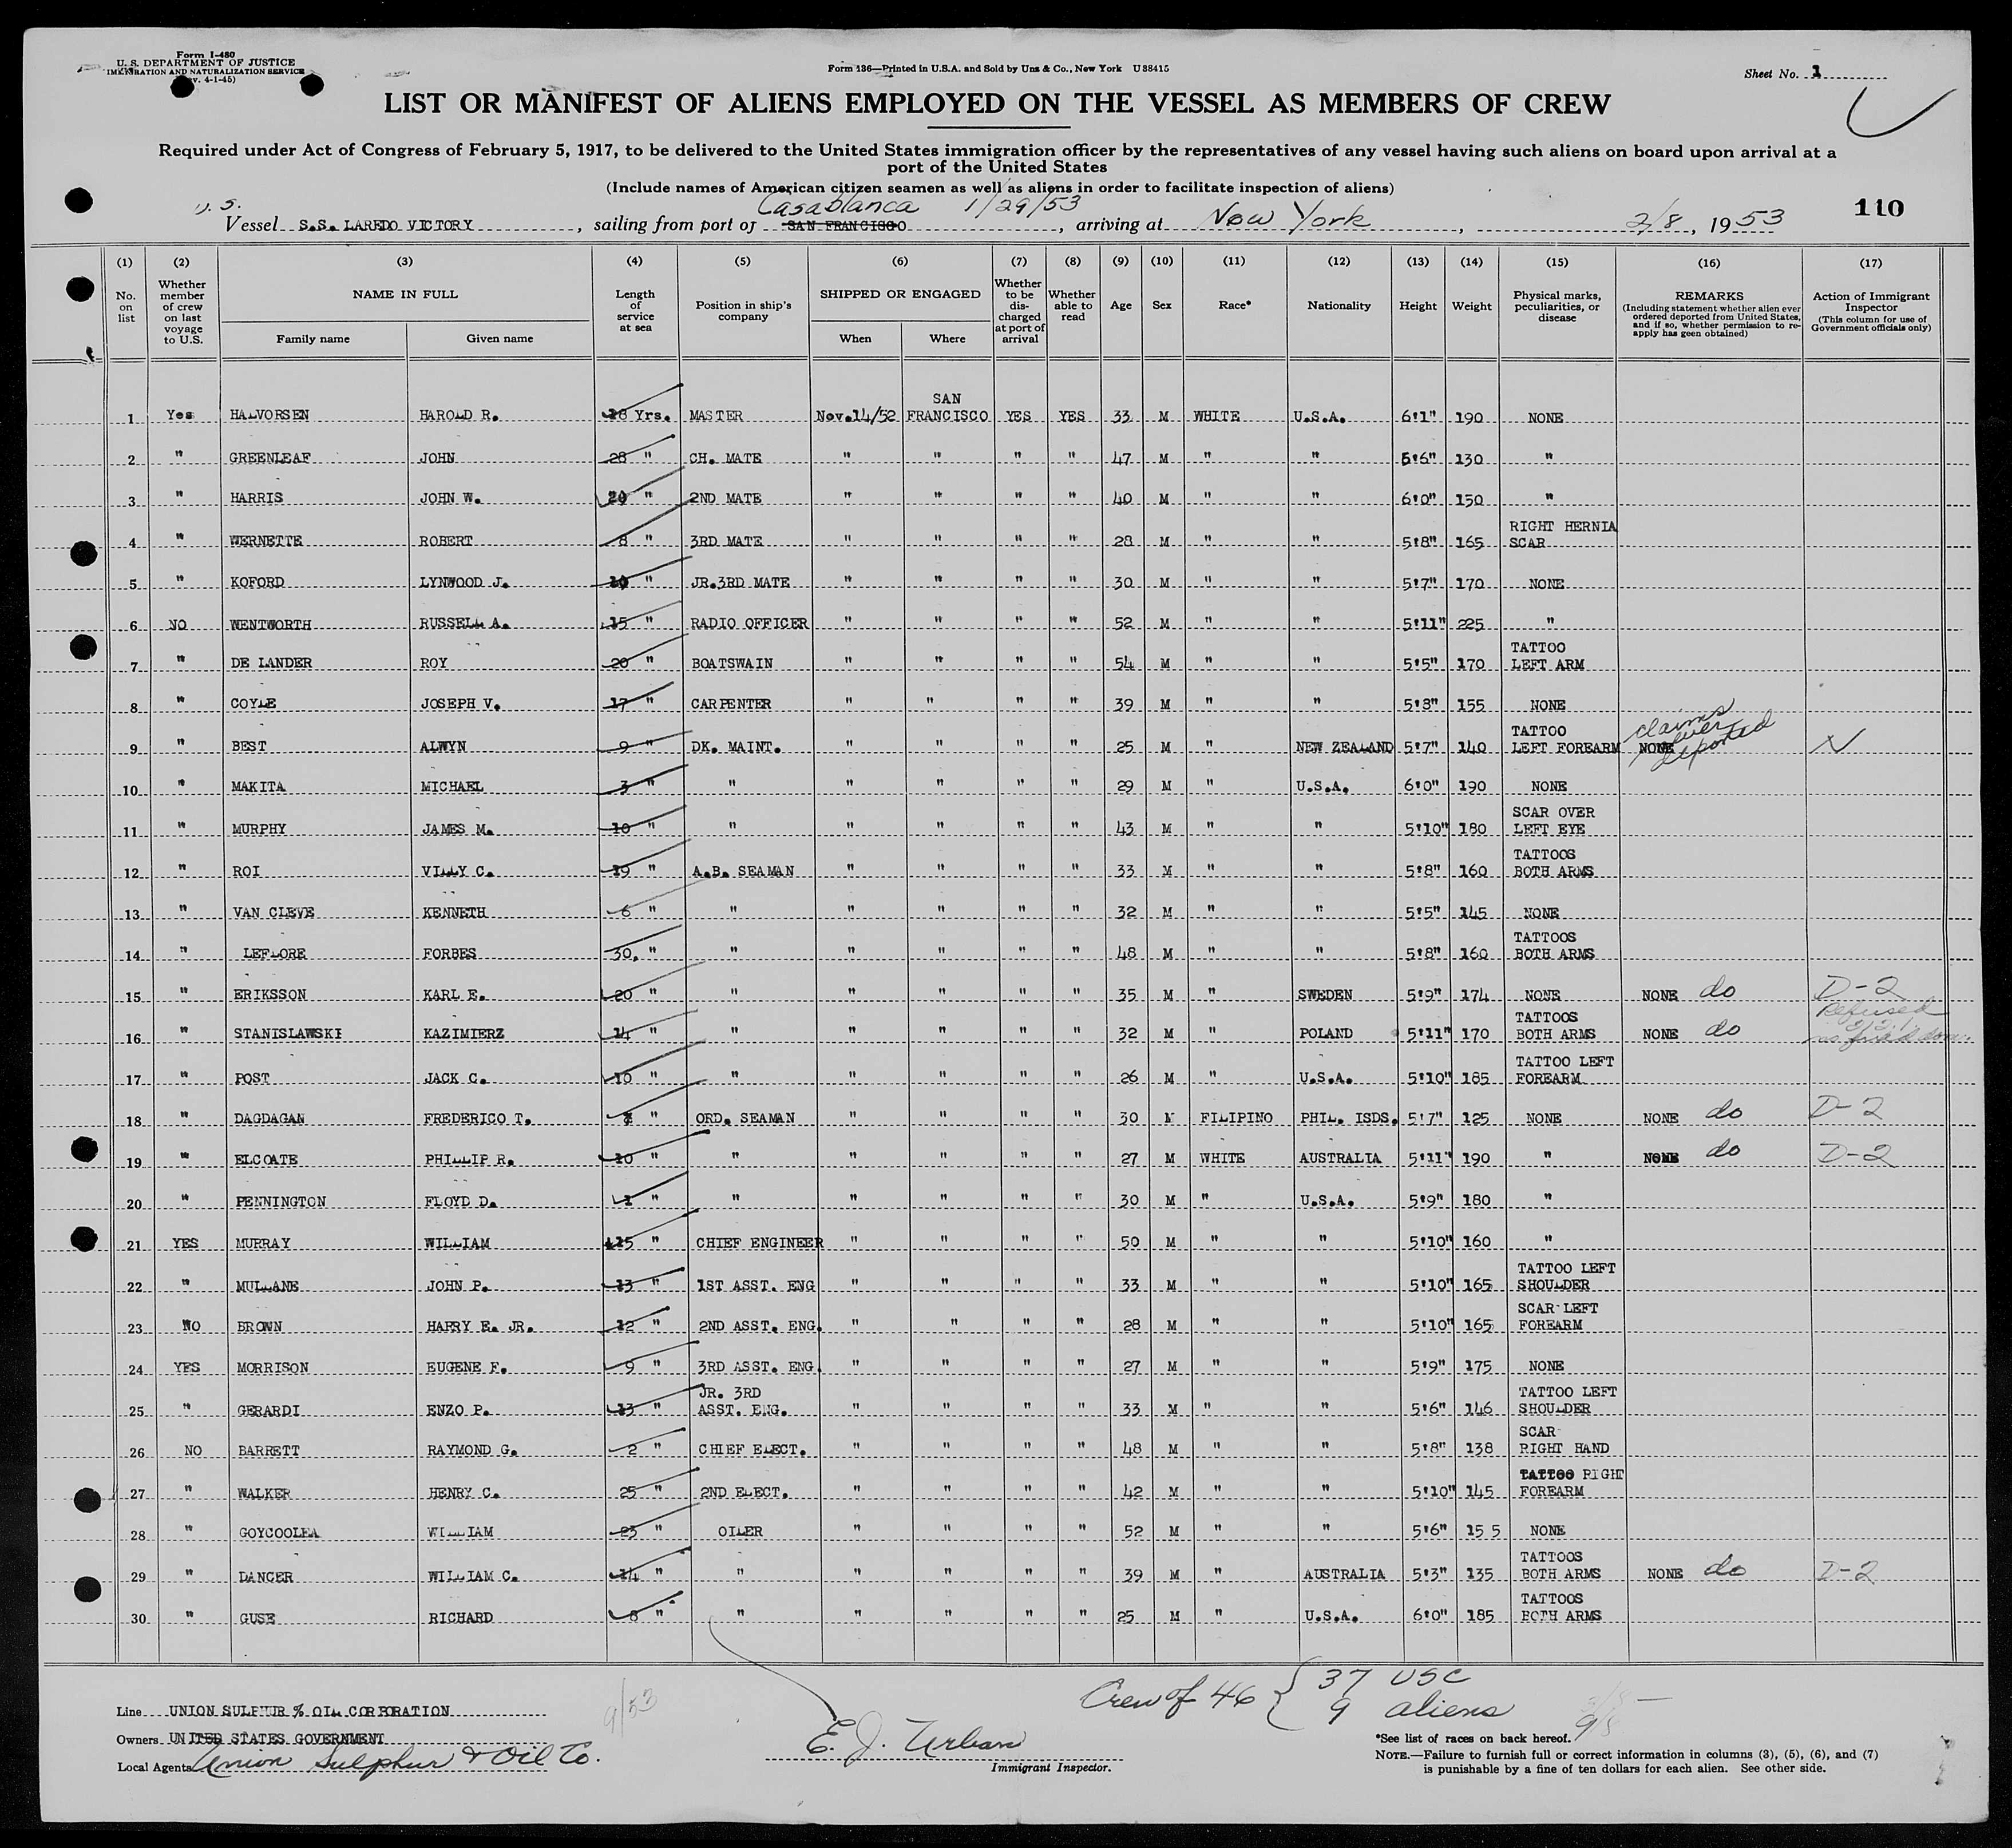 Form I-480
U. S. DEPARTMENT OF JUSTICE
IMMIGRATION AND NATURALIZATION SERVICE
(Rev. 4-1-45)
Form 136—Printed in U.S.A. and Sold by Unz & Co., New York U38415
Sheet No. 1
LIST OR MANIFEST OF ALIENS EMPLOYED ON THE VESSEL AS MEMBERS OF CREW
Required under Act of Congress of February 5, 1917, to be delivered to the United States immigration officer by the representatives of any vessel having such aliens on board upon arrival at a
port of the United States
(Include names of American citizen seamen as well as aliens in order to facilitate inspection of aliens)
U.S. Casablanca 1/29/53
Vessel S.S. LAREDO VICTORY, sailing from port of SAN FRANCISCO, arriving at New York, 2/8, 1953
110
(1) (2) (3) (4) (5) (6) (7) (8) (9) (10) (11) (12) (13) (14) (15) (16) (17)
No. on list
Whether member of crew on last voyage to U.S.
NAME IN FULL
Family name Given name
Length of service at sea
Position in ship's company
SHIPPED OR ENGAGED
When Where
Whether to be discharged at port of arrival
Whether able to read
Age Sex Race* Nationality Height Weight
Physical marks, peculiarities, or disease
REMARKS
(Including statement whether alien ever ordered deported from United States, and if so, whether permission to re-apply has geen obtained)
Action of Immigrant Inspector
(This column for use of Government officials only)
1 Yes HALVORSEN HAROLD R. 18 Yrs. MASTER Nov.14/52 SAN FRANCISCO YES YES 33 M WHITE U.S.A. 6'1" 190 NONE
2 " GREENLEAF JOHN 28 " CH. MATE " " " " 47 M " " 5'6" 130 "
3 " HARRIS JOHN W. 20 " 2ND MATE " " " " 40 M " " 6'0" 150 "
4 " WERNETTE ROBERT 8 " 3RD MATE " " " " 28 M " " 5'8" 165 RIGHT HERNIA SCAR
5 " KOFORD LYNWOOD J. 10 " JR.3RD MATE " " " " 30 M " " 5'7" 170 NONE
6 NO WENTWORTH RUSSELL A. 15 " RADIO OFFICER " " " " 52 M " " 5'11" 225 "
7 " DE LANDER ROY 20 " BOATSWAIN " " " " 54 M " " 5'5" 170 TATTOO LEFT ARM
8 " COYLE JOSEPH V. 17 " CARPENTER " " " " 39 M " " 5'8" 155 NONE
9 " BEST ALWYN 9 " DK. MAINT. " " " " 25 M " NEW ZEALAND 5'7" 140 TATTOO LEFT FOREARM NONE claims never deported
10 " MAKITA MICHAEL 3 " " " " " " 29 M " U.S.A. 6'0" 190 NONE
11 " MURPHY JAMES M. 10 " " " " " " 43 M " " 5'10" 180 SCAR OVER LEFT EYE
12 " ROI VILLY C. 19 " A.B. SEAMAN " " " " 33 M " " 5'8" 160 TATTOOS BOTH ARMS
13 " VAN CLEVE KENNETH 6 " " " " " " 32 M " " 5'5" 145 NONE
14 " LEFLORE FORBES 30 " " " " " " 48 M " " 5'8" 160 TATTOOS BOTH ARMS
15 " ERIKSSON KARL E. 20 " " " " " " 35 M " SWEDEN 5'9" 174 NONE NONE do D-2
16 " STANISLAWSKI KAZIMIERZ 14 " " " " " " 32 M " POLAND 5'11" 170 TATTOOS BOTH ARMS NONE do Refused
17 " POST JACK C. 10 " " " " " " 26 M " U.S.A. 5'10" 185 TATTOO LEFT FOREARM
18 " DAGDAGAN FREDERICO T. " ORD. SEAMAN " " " " 30 M FILIPINO PHIL. ISDS. 5'7" 125 NONE NONE do D-2
19 " ELCOATE PHILLIP R. 10 " " " " " " 27 M WHITE AUSTRALIA 5'11" 190 " NONE do D-2
20 " PENNINGTON FLOYD D. 1 " " " " " " 30 M " U.S.A. 5'9" 180 "
21 YES MURRAY WILLIAM 15 " CHIEF ENGINEER " " " " 50 M " " 5'10" 160 "
22 " MULLANE JOHN P. 13 " 1ST ASST. ENG " " " " 33 M " " 5'10" 165 TATTOO LEFT SHOULDER
23 NO BROWN HARRY E. JR. 12 " 2ND ASST. ENG. " " " " 28 M " " 5'10" 165 SCAR LEFT FOREARM
24 YES MORRISON EUGENE F. 9 " 3RD ASST. ENG. " " " " 27 M " " 5'9" 175 NONE
25 " GERARDI ENZO P. 13 " JR. 3RD ASST. ENG. " " " " 33 M " " 5'6" 146 TATTOO LEFT SHOULDER
26 NO BARRETT RAYMOND G. 2 " CHIEF ELECT. " " " " 48 M " " 5'8" 138 SCAR RIGHT HAND
27 " WALKER HENRY C. 25 " 2ND ELECT. " " " " 42 M " " 5'10" 145 TATTOO RIGHT FOREARM
28 " GOYCOOLEA WILLIAM 23 " OILER " " " " 52 M " " 5'6" 155 NONE
29 " DANCER WILLIAM C. 14 " " " " " " 39 M " AUSTRALIA 5'3" 135 TATTOOS BOTH ARMS NONE do D-2
30 " GUSE RICHARD 8 " " " " " " 25 M " U.S.A. 6'0" 185 TATTOOS BOTH ARMS
Crew of 46 { 37 USC
9 aliens
Line UNION SULPHUR % OIL CORPORATION
9/53
Owners UNITED STATES GOVERNMENT
Local Agents Union Sulphur & Oil Co.
E. J. Urban
Immigrant Inspector.
*See list of races on back hereof.
NOTE.—Failure to furnish full or correct information in columns (3), (5), (6), and (7)
is punishable by a fine of ten dollars for each alien. See other side.